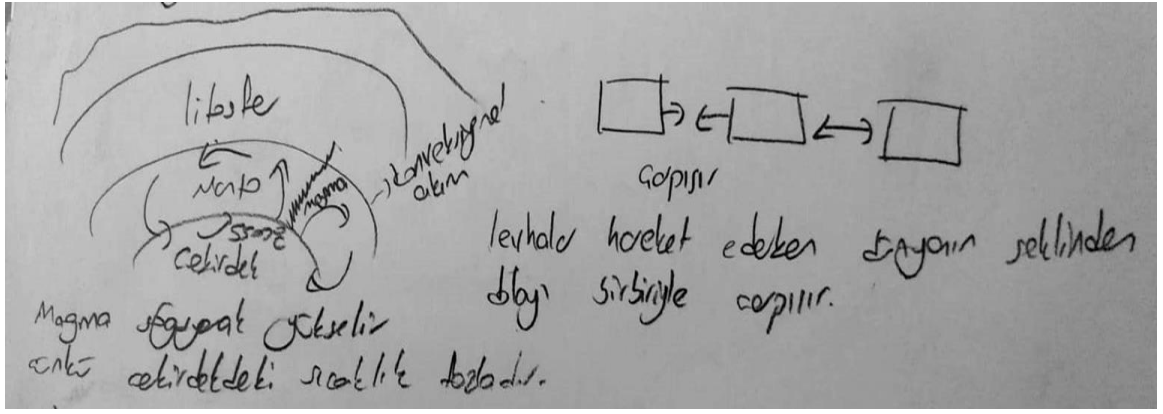 litosfer
Manto
magma
→ konveksiyonel
akım
Çekirdek
Magma yükselir
çünkü çekirdekteki sıcaklık fazladır.
Çarpışır
levhalar hareket ederken dünyanın şeklinden
dolayı birbiriyle çarpışır.